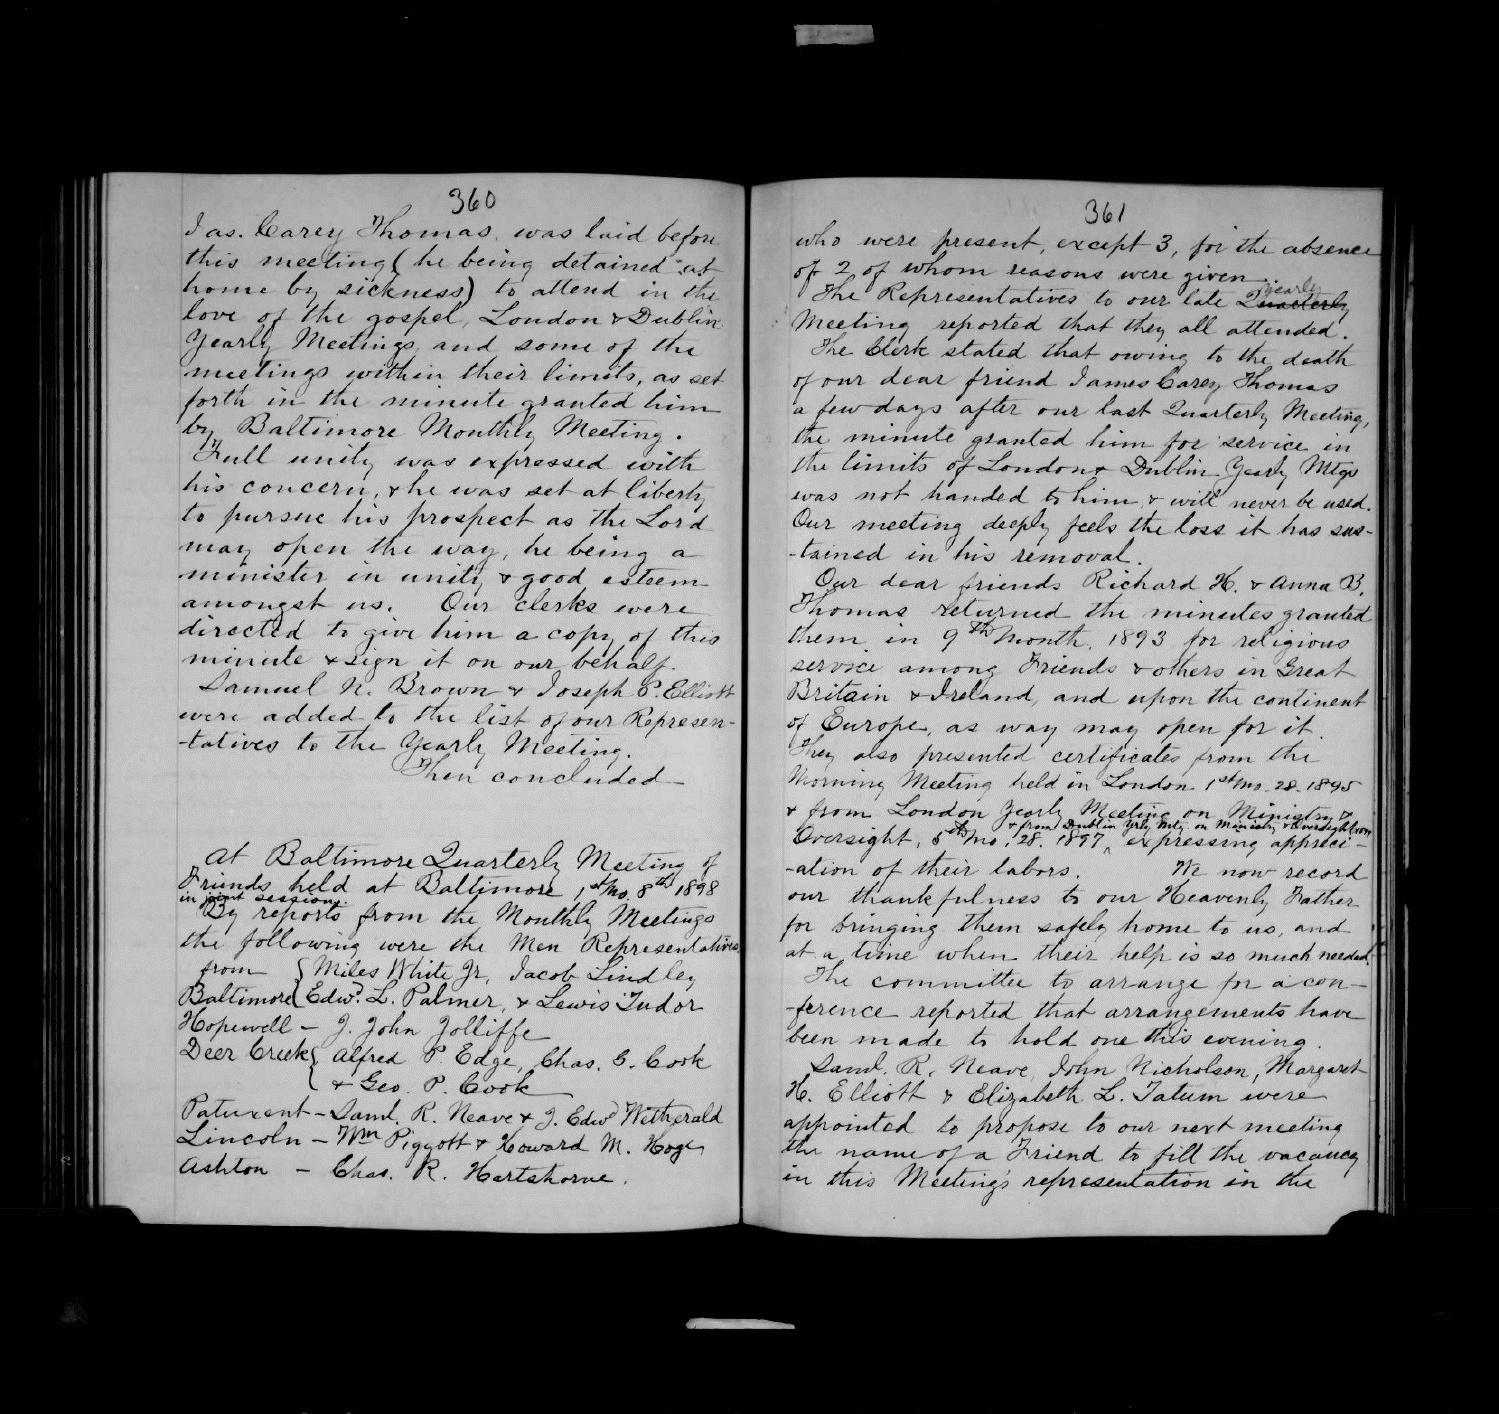 360
Jas. Carey Thomas, was laid before
this meeting (he being detained at
home by sickness) to attend in the
love of the gospel, London & Dublin
Yearly Meetings, and some of the
meetings within their limits, as set
forth in the minute granted him
by Baltimore Monthly Meeting.
Full unity was expressed with
his concern, & he was set at liberty
to pursue his prospect as the Lord
may open the way, he being a
minister in unity & good esteem
amongst us. Our clerks were
directed to give him a copy of this
minute & sign it on our behalf.
Samuel N. Brown & Joseph P. Elliott
were added to the list of our Represen-
-tatives to the Yearly Meeting.
Then concluded
At Baltimore Quarterly Meeting of
Friends held at Baltimore, 1st Mo. 8th 1898
in joint session.
By reports from the Monthly Meetings
the following were the Men Representatives
from { Miles White Jr, Jacob Lindley
Baltimore { Edwd. L. Palmer, & Lewis Tudor
Hopewell – J. John Jolliffe
Deer Creek { Alfred P. Edge, Chas. G. Cook
{ & Geo. P. Cook
Patuxent – Saml. R. Neave & J. Edwd Wetherald
Lincoln – Wm Piggott & Howard M. Hoge
Ashton – Chas. R. Hartshorne.
361
who were present, except 3, for the absence
of 2 of whom reasons were given.
The Representatives to our late Quarterly Yearly
Meeting reported that they all attended.
The Clerk stated that owing to the death
of our dear friend James Carey Thomas
a few days after our last Quarterly Meeting,
the minute granted him for service in
the limits of London & Dublin Yearly Mtgs
was not handed to him & will never be used.
Our meeting deeply feels the loss it has sus-
-tained in his removal.
Our dear friends Richard H. & Anna B.
Thomas returned the minutes granted
them in 9th Month, 1893 for religious
service among Friends & others in Great
Britain & Ireland, and upon the continent
of Europe, as way may open for it.
They also presented certificates from the
Morning Meeting held in London 1st mo. 28. 1895
& from London Yearly Meeting on Ministry &
Oversight, 5th mo. 28. 1897, & from Dublin Yrly Mtg on Ministry & Oversight expressing appreci-
-ation of their labors. We now record
our thankfulness to our Heavenly Father
for bringing them safely home to us, and
at a time when their help is so much needed.
The committee to arrange for a con-
-ference reported that arrangements have
been made to hold one this evening.
Saml. R. Neave, John Nicholson, Margaret
H. Elliott & Elizabeth L. Tatum were
appointed to propose to our next meeting
the name of a Friend to fill the vacancy
in this Meeting's representation in the